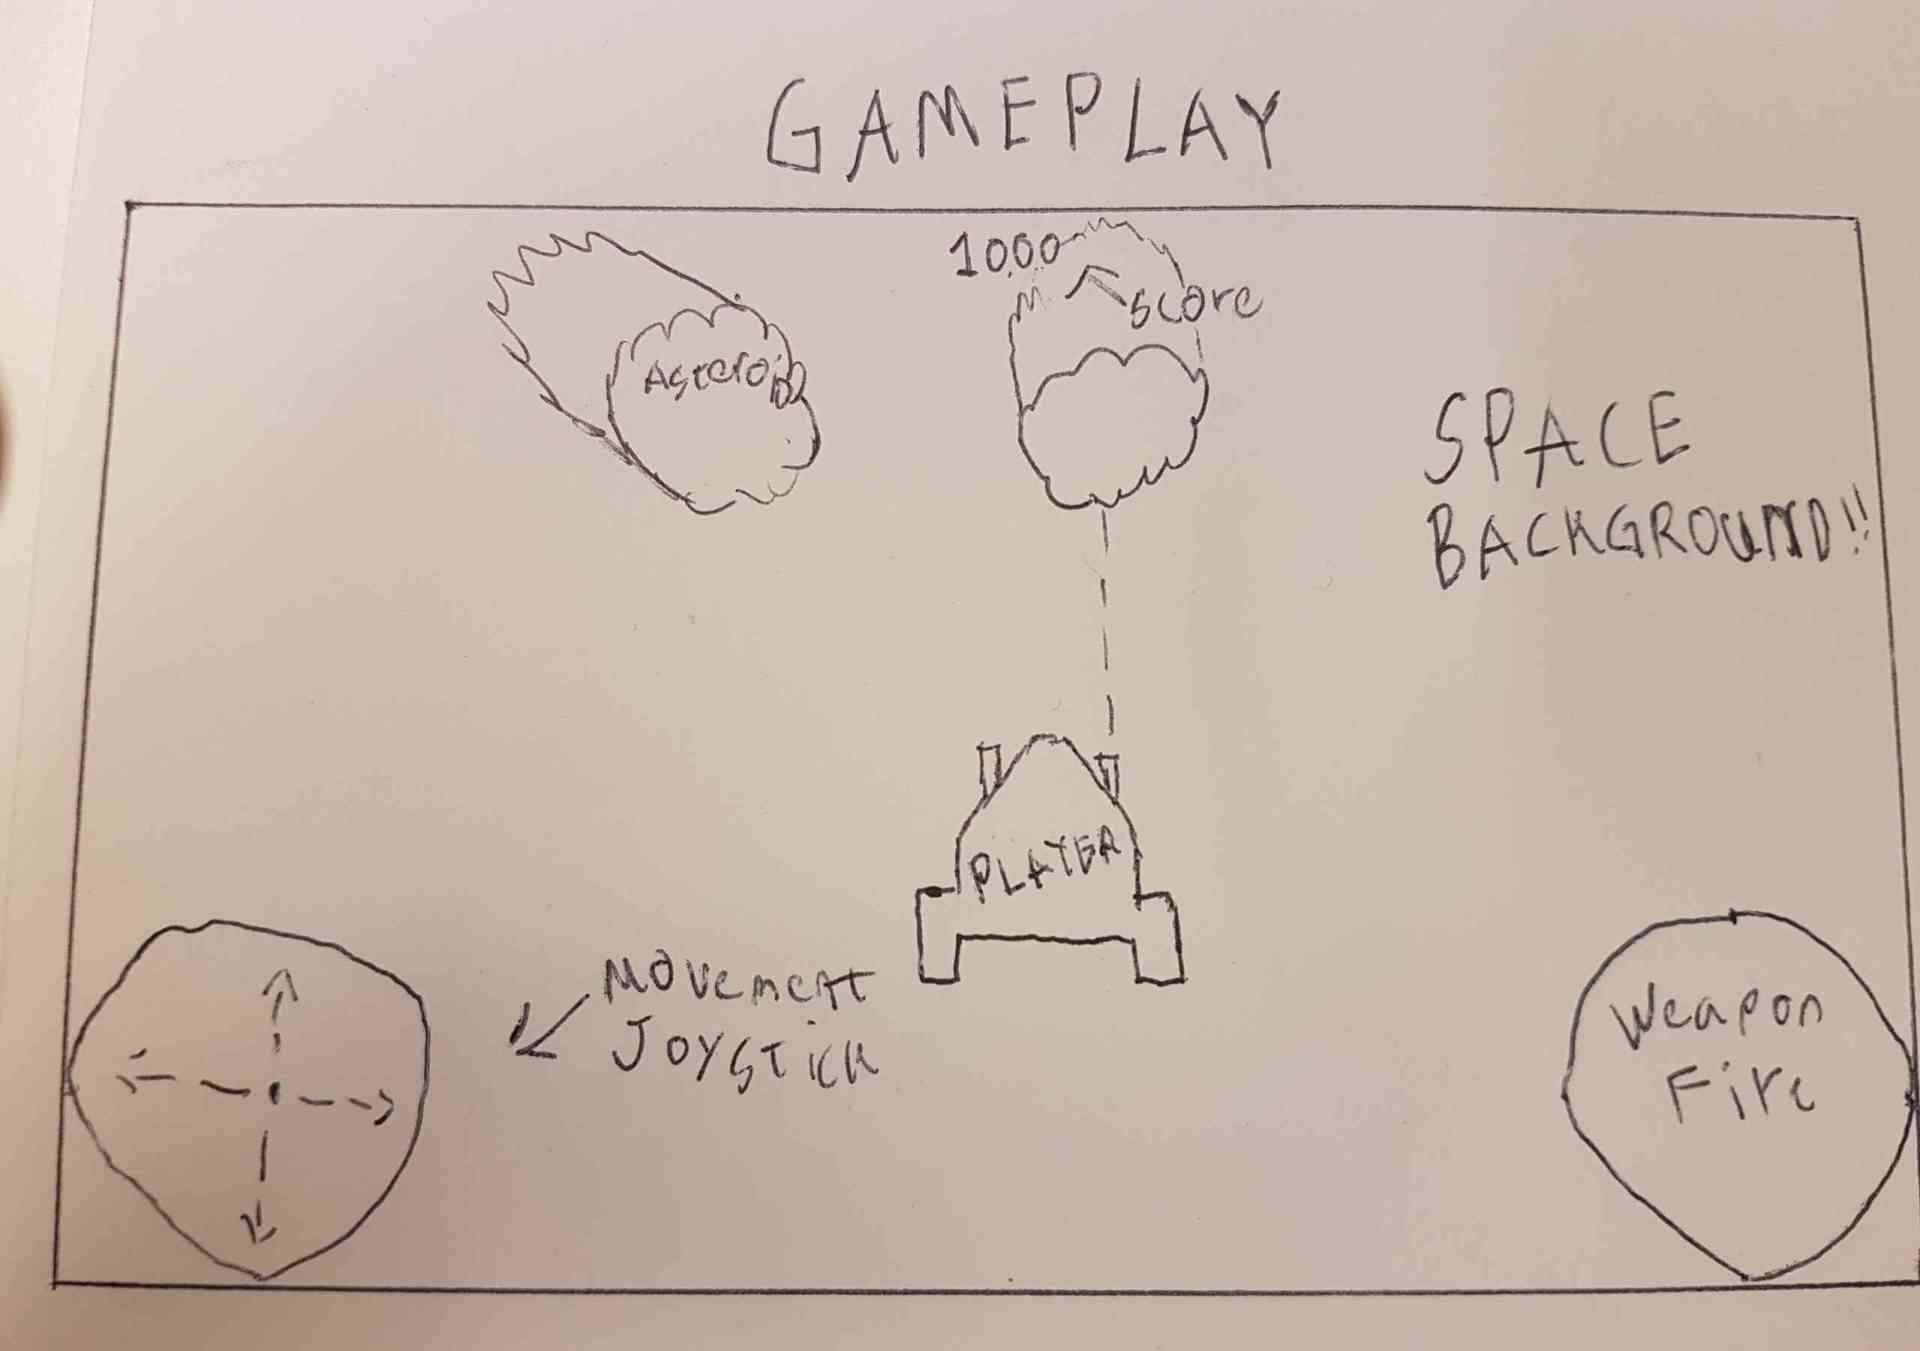 GAMEPLAY
1000
score
Asteroid
SPACE
BACKGROUND!!
PLAYER
Movement
Joystick
Weapon
Fire